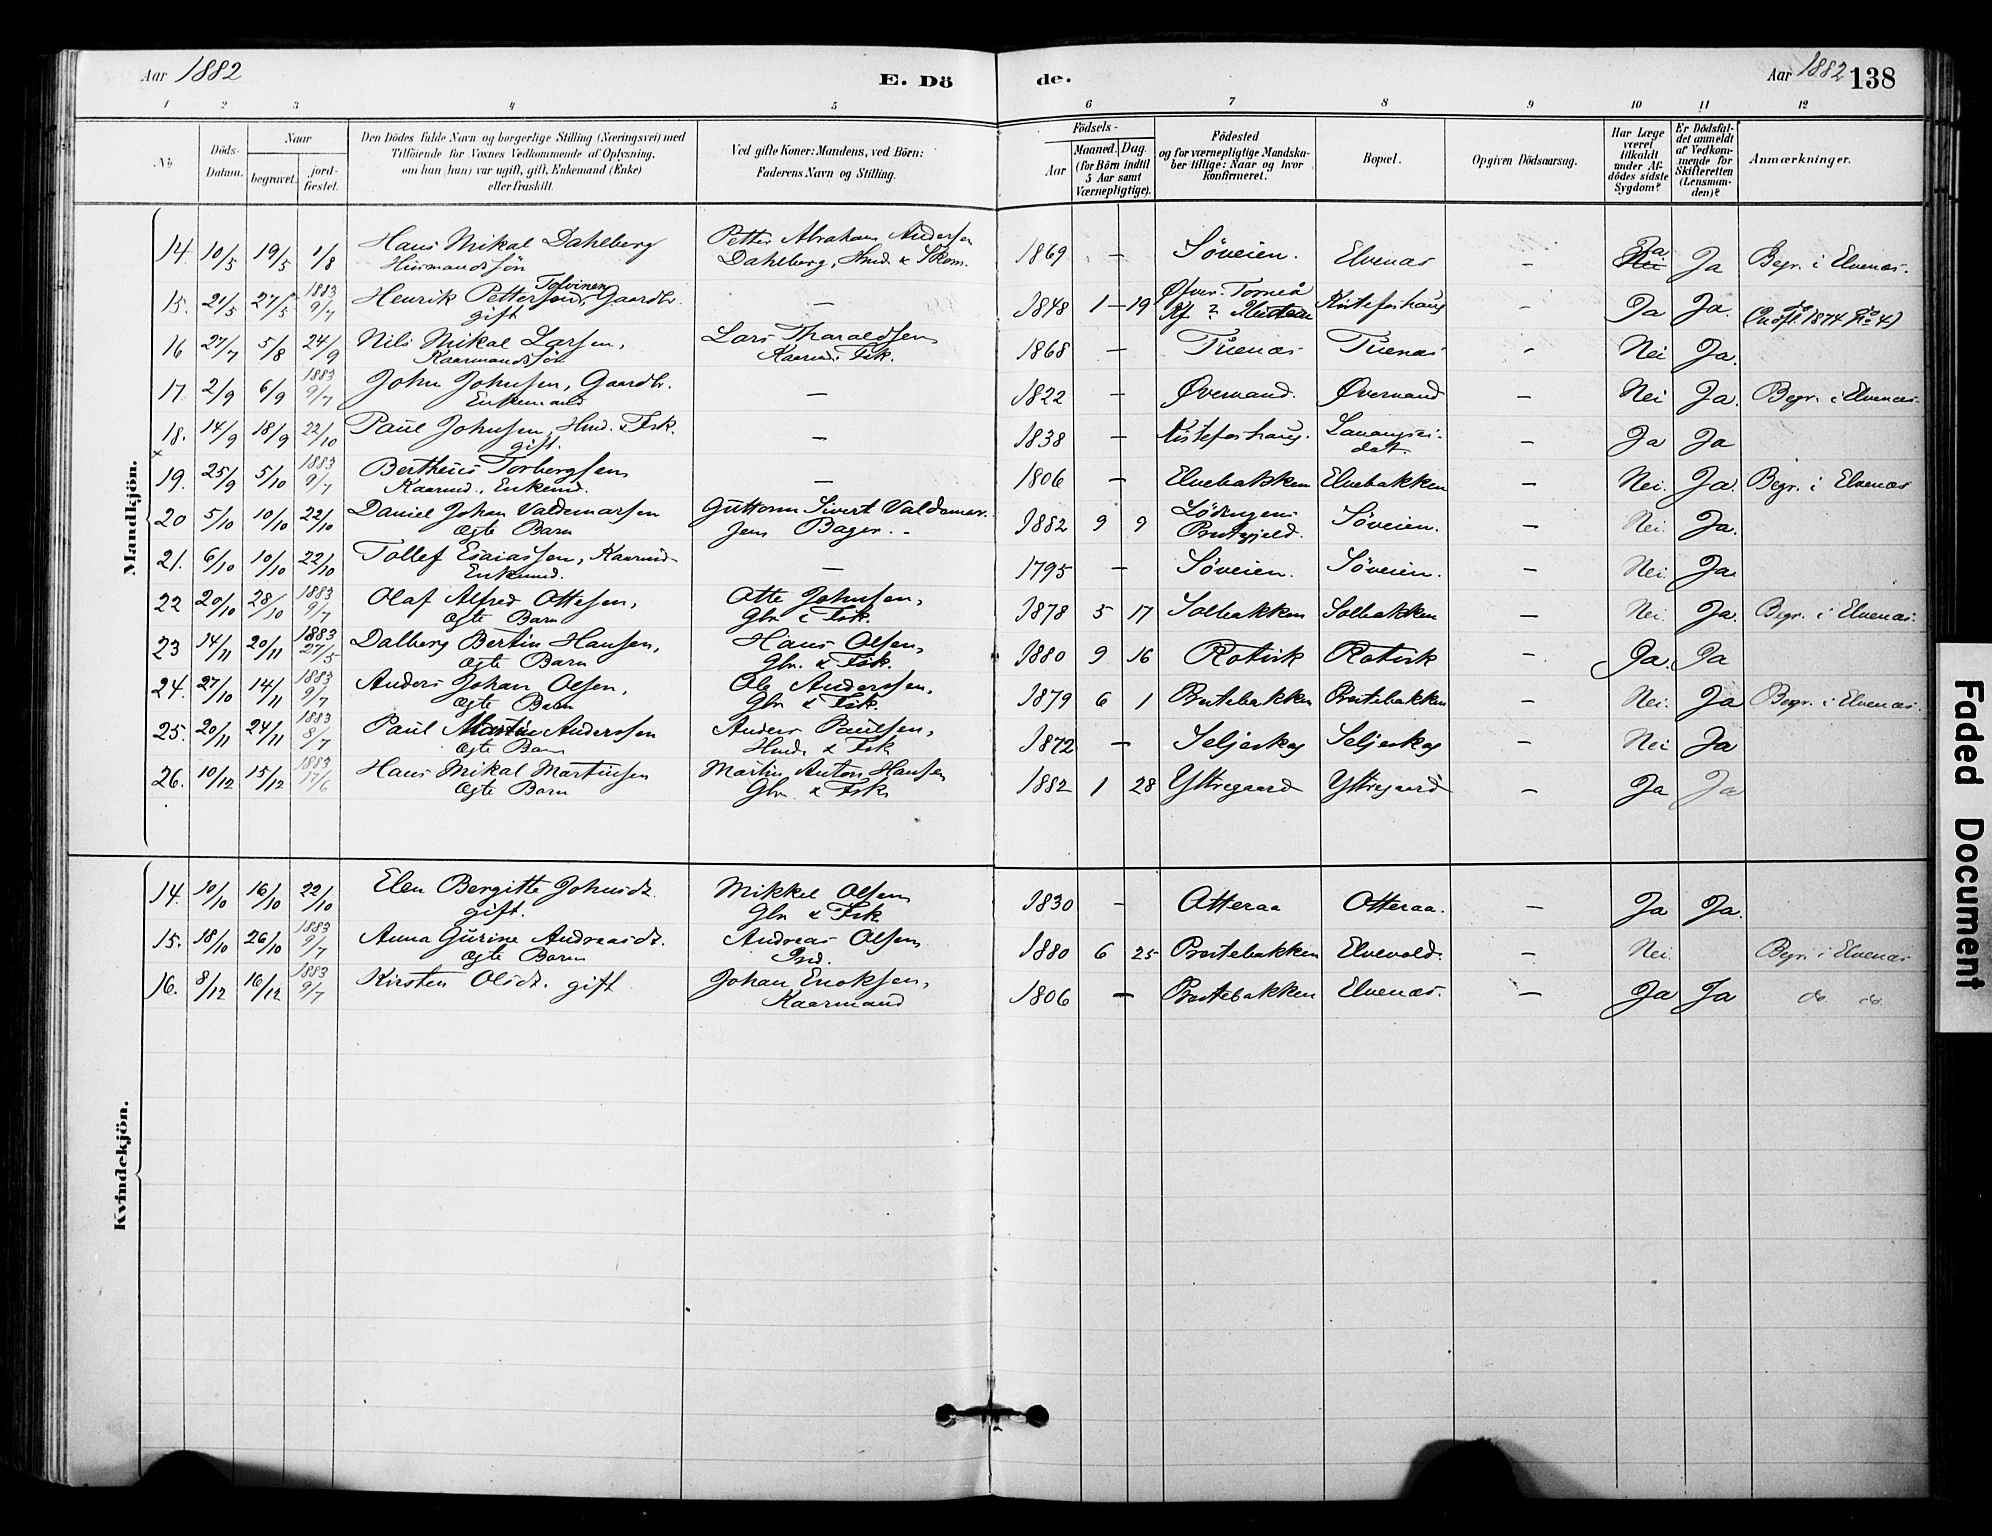 Aar 1882
E. Dö
de.
Aar 1882 138
1 2 3 4 5 6 7 8 9 10 11 12
No
Döds-Datum.
Naar
begravet.
jord-fæstet.
Den Dödes fulde Navn og borgerlige Stilling (Næringsvei) med
Tilföiende for Voxnes Vedkommende af Oplysning,
om han (hun) var ugift, gift, Enkemand (Enke)
eller fraskilt.
Ved gifte Koner: Mandens, ved Börn:
Faderens Navn og Stilling.
Födsels-
Aar
Maaned. Dag.
(for Börn indtil
5 Aar samt
Værnepligtige).
Födested
og for værnepligtige Mandska-
ber tillige: Naar og hvor
konfirmeret.
Bopæl.
Opgiven Dödsaarsag.
Har Læge
været
tilkaldt
under Af-
dödes sidste
Sygdom?
Er Dödsfal-
det anmeldt
af Vedkom-
mende for
Skifteretten
(Lensman-
den)?
Anmærkninger.
Mandkjön.
14. 10/5 19/5 1/8 Hans Mikal Dahlberg Petter Abraham Andersen 1869 – Söveien. Elvenæs – Nei Ja Ja Begr. i Elvenæs.
Husmandssön Dahlberg, Hmd. & Skom.
15. 21/5 27/5 1883 9/7 Henrik Petterson Tolvinen, Gaardbr. – 1848 1 – 19 Öfver Torneå Kistefoshaug Ja Ja.
gift
16 27/7 5/8 24/9 Nils Mikal Larsen, Lars Tharaldsen 1868 – Tuenæs Tuenæs – Nei Ja.
Kaarmandssön Kaarmd. Fsk.
17. 2/9 6/9 1883 9/7 John Johnsen, Gaardbr. – 1822 – Øvervand. Øvervand – Nei Ja. Begr. i Elvenæs.
Enkemand
18. 14/9 18/9 22/10 Paul Johnsen, Hmd. & Fsk. – 1838 – Kistefoshaug. Lavangsei-
det. – Ja Ja
gift.
19. 25/9 5/10 1883 9/7 Bertheus Torbergsen – 1806 – Elvebakken Elvebakken – Nei. Ja. Begr. i Elvenæs
Kaarmd., Enkemd.
20 5/10 10/10 22/10 Daniel Johan Valdemarsen Guttorm Sivert Valdemar- 1882 9 9 Lödingens Söveien. – Nei. Ja.
Ægte Barn sen Bager. – Præstegjeld.
21. 6/10 10/10 22/10 Tollef Esaiassen, Kaarmd. – 1795 – Söveien. Söveien. – Nei. Ja.
Enkemd.
22 20/10 28/10 1883 9/7 Olaf Alfred Ottesen, Otte Johnsen, 1878 5 17 Solbakken Solbakken – Nei. Ja. Begr. i Elvenæs.
Ægte Barn Gbr. & Fsk.
23 14/11 20/11 1883 27/5 Dalberg Bertin Hansen, Hans Olsen, 1880 9 16 Rotvik Rotvik – Ja. Ja
Ægte Barn Gbr. & Fsk.
24. 27/10 14/11 1883 9/7 Anders Johan Olsen, Ole Anderssen, 1879 6 1 Prestebakken Prestebakken – Nei. Ja Begr. i Elvenæs.
Ægte Barn Gbr. & Fsk.
25. 20/11 24/11 1883 8/7 Paul Martin Anderssen Anders Paulsen, 1872 – Seljeskog Seljeskog – Nei Ja
Ægte Barn Hmd. & Fsk
26. 10/12 15/12 1883 17/6 Hans Mikal Martinsen Martin Anton Hansen 1882 1 28 Yttregaard Yttregaard – Ja Ja
Ægte Barn Gbr. & Fsk
Kvindekjön.
14. 10/10 16/10 22/10 Elen Bergitte Johnsdt. Mikkel Olsen 1830 – Otteraa Otteraa. – Ja Ja.
gift. Gbr & Fsk
15. 18/10 26/10 1883 9/7 Anna Gurine Andreasdt. Andreas Olsen 1880 6 25 Prestebakken Elvevold. – Nei. Begr. i Elvenæs
Ægte Barn Ind.
16. 8/12 16/12 1883 9/7 Kirsten Olsdt. gift Johan Enoksen, 1806 – Prestebakken Elvenæs. – Ja Ja do. do.
Kaarmand
Faded Document